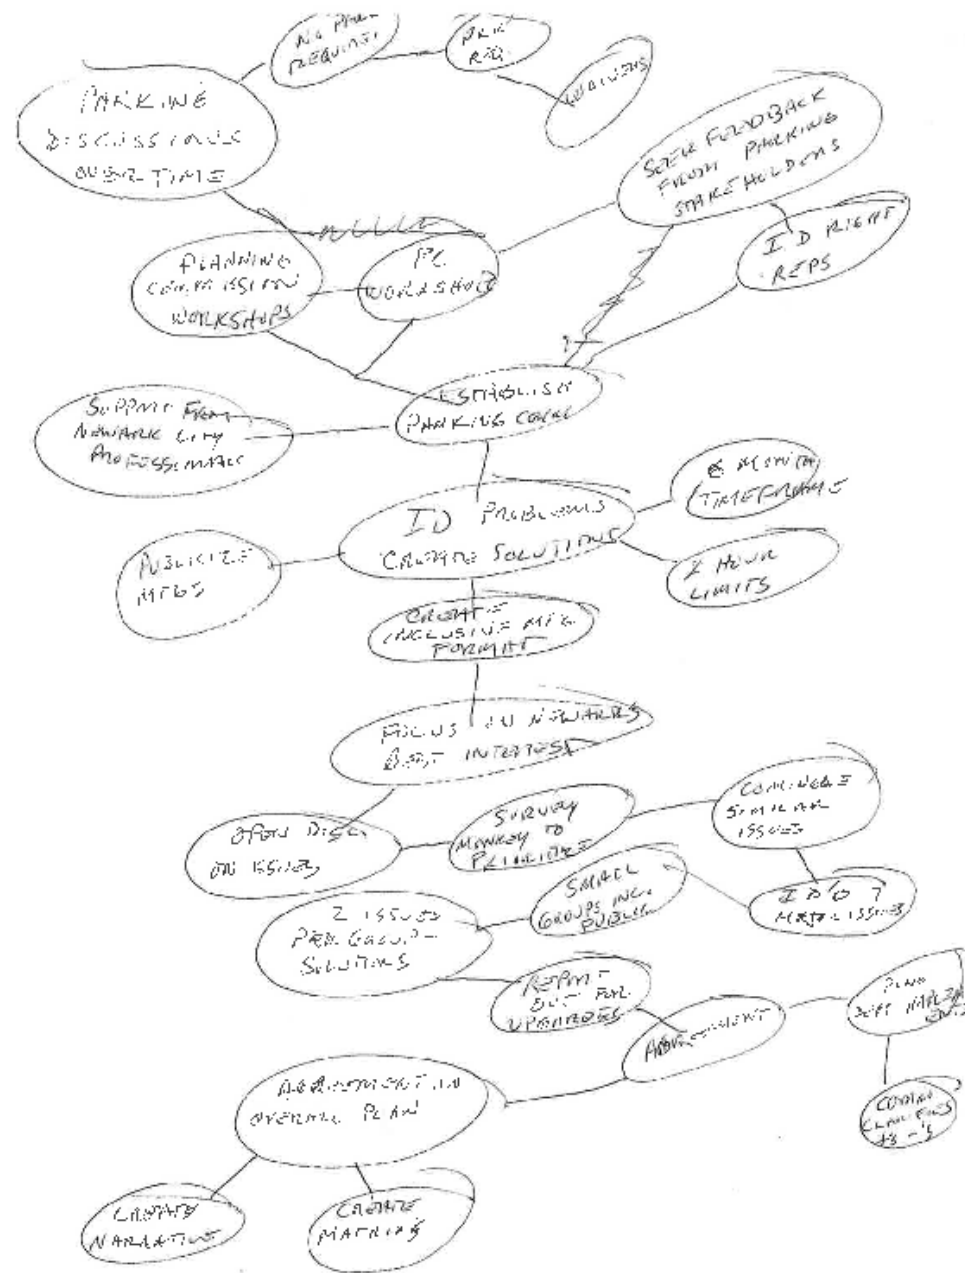 NO PARK
REQUIRE.
PRK
REQ.
WAIVERS
PARKING
DISCUSSIONS
OVER TIME
SEEK FEEDBACK
FROM PARKING
STAKEHOLDERS
I D RIGHT
REPS
PLANNING
COMMISSION
WORKSHOPS
PC
WORKSHOP
ESTABLISH
PARKING
SUPPORT FROM
NEWARK CITY
PROFESSIONALS
ID PROBLEMS
CREATE SOLUTIONS
6 MONTH
TIMEFRAME
PUBLICIZE
MTGS
2 HOUR
LIMITS
CREATE
INCLUSIVE MTG
FORMAT
FOCUS ON NEWARKS
BEST INTEREST
OPEN DISC.
ON ISSUES
SURVEY
MONKEY TO
PRIORITIZE
COMBINE
SIMILAR
ISSUES
SMALL
GROUPS INC.
PUBLIC
I D 7
MAJOR ISSUES
2 ISSUES
PER GROUP -
SOLUTIONS
REPORT
OUT FOR
UPGRADES
AGREEMENT
PLNG
DEPT
AGREEMENT ON
OVERALL PLAN
CLARIFIES
+'s -'s
CREATE
NARRATIVE
CREATE
MATRIXS